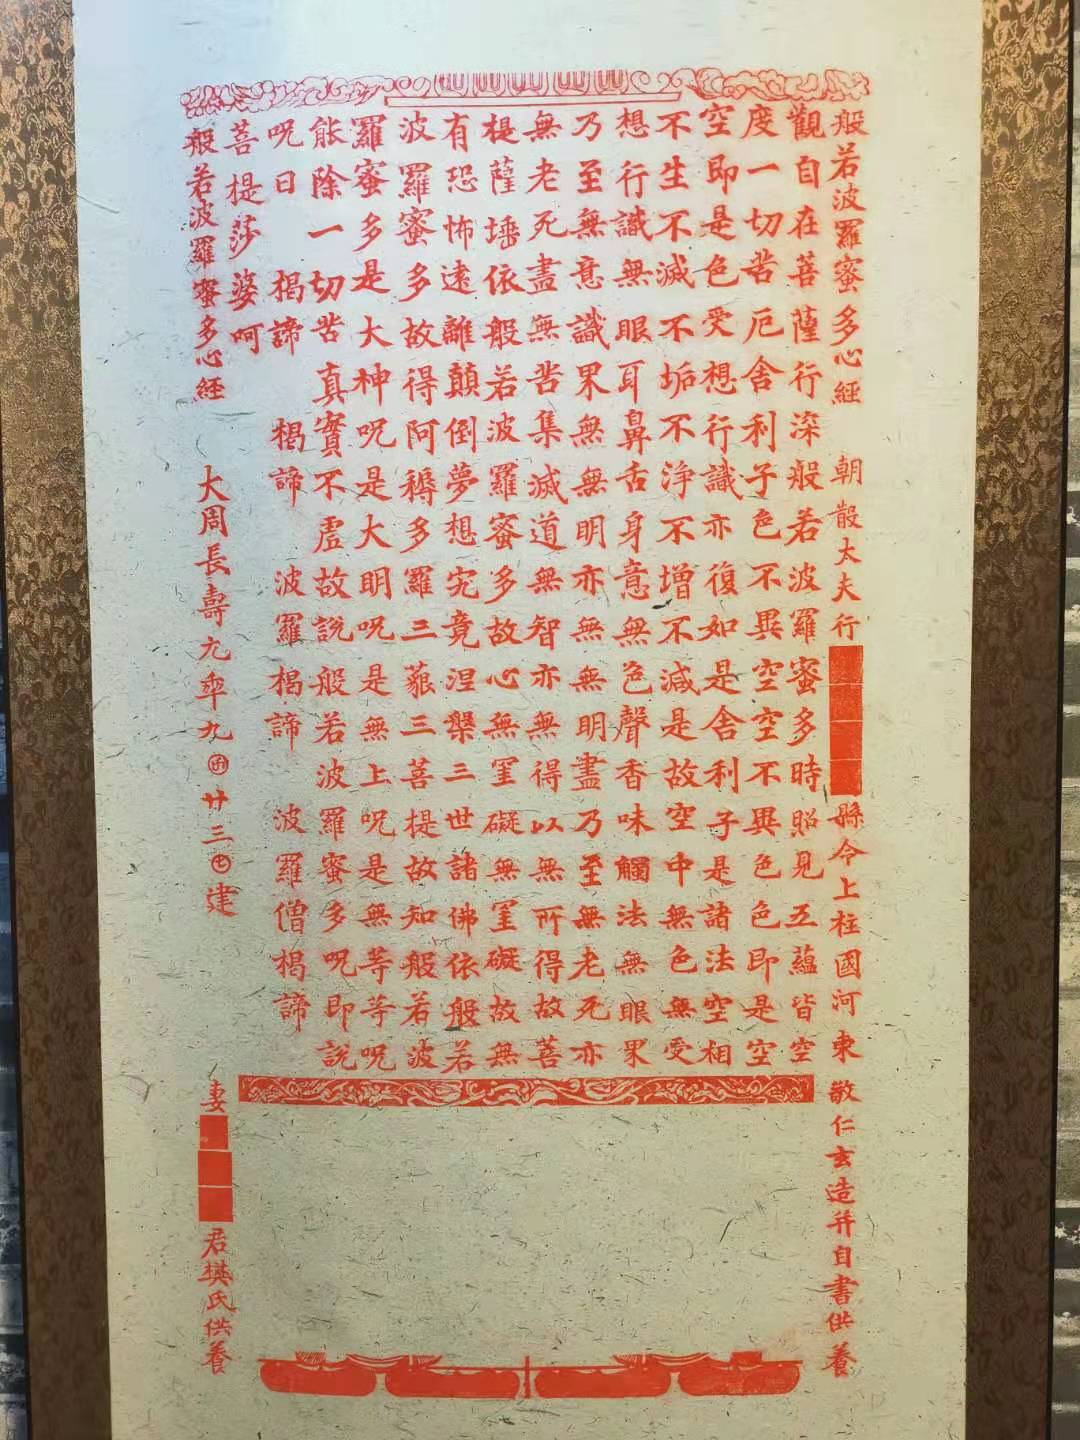 般若波羅蜜多心經 朝散太夫行 縣令上柱國河東 敬仁玄造并自書供養
觀自在菩薩行深般若波羅蜜多時照見五蘊皆空
度一切苦厄舍利子色不異空空不異色色即是空
空即是色受想行識亦復如是舍利子是諸法空相
不生不滅不垢不淨不增不減是故空中無色無受
想行識無眼耳鼻舌身意無色聲香味觸法無眼果
乃至無意識果無無明亦無無明盡乃至無老死亦
無老死盡無苦集滅道無智亦無得以無所得故菩
提薩埵依般若波羅蜜多故心無罣礙無罣礙故無
有恐怖遠離顛倒夢想究竟涅槃三世諸佛依般若
波羅蜜多故得阿耨多羅三藐三菩提故知般若波
羅蜜多是大神呪是大明呪是無上呪是無等等呪
能除一切苦真實不虛故說般若波羅蜜多呪即說
呪曰 揭諦 揭諦 波羅揭諦 波羅僧揭諦
菩提莎婆呵
般若波羅蜜多心經 大周長壽元年九 廿三 建 妻 君樊氏供養